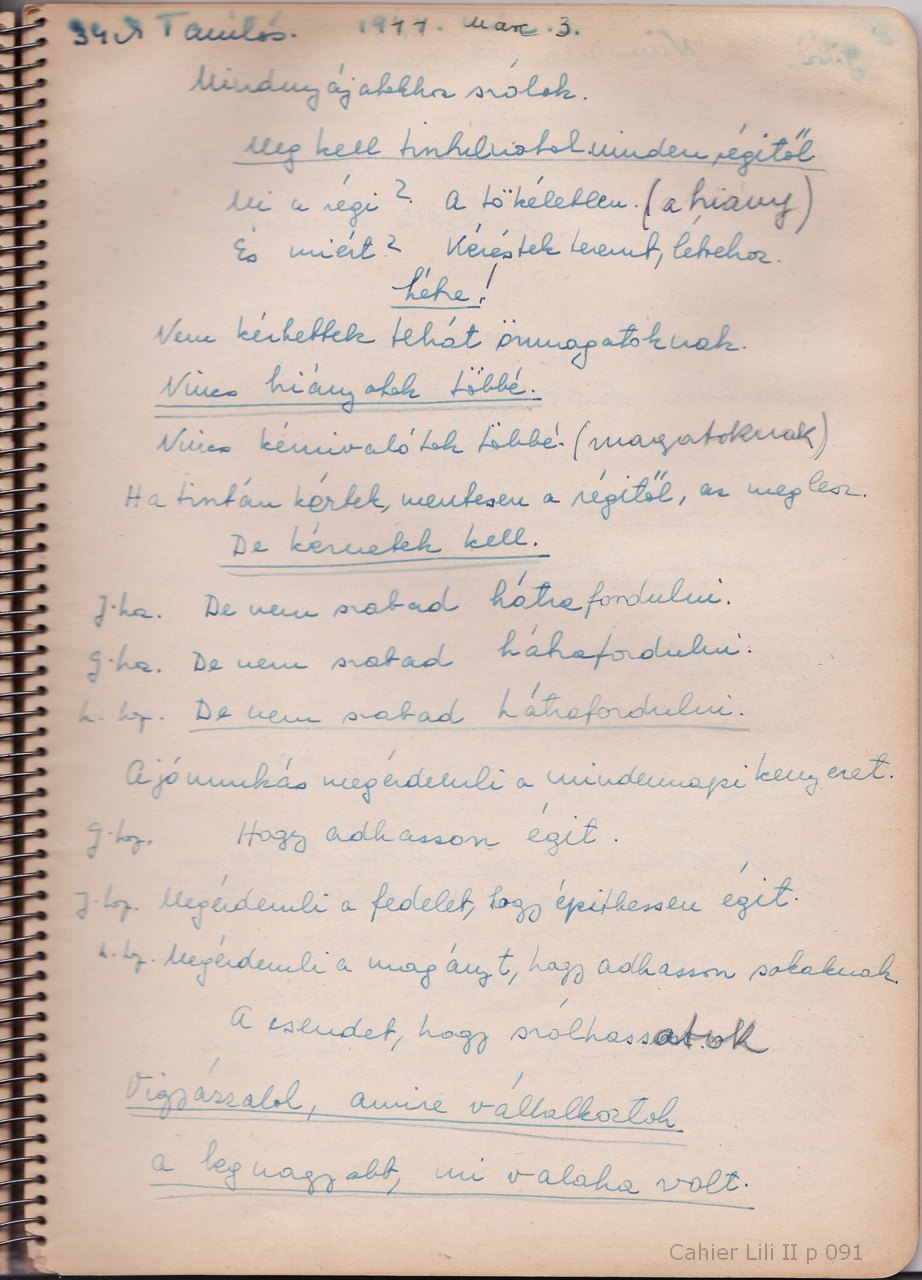 34. Tanítás. 1944. Marc. 3.
Mindnyájatokhoz szólok.
Meg kell tisztulnotok minden régitől
Mi a régi? A tökéletlen. (a hiány)
És miért? Kéréstek teremt, létrehoz.
Létre!
Nem kérhettek tehát önmagatoknak.
Nincs hiányotok többé.
Nincs kérnivalótok többé. (magatoknak)
Ha tisztán kértek, mentesen a régitől, az meglesz.
De kérnetek kell.
J-hoz. De nem szabad hátrafordulni.
G-hoz. De nem szabad hátrafordulni.
L. hoz. De nem szabad hátrafordulni.
A jó munkás megérdemli a mindennapi kenyeret.
G-hoz. Hogy adhasson égit.
J-hoz. Megérdemli a fedelet, hogy építhessen égit.
L. hoz. Megérdemli a magányt, hogy adhasson sokaknak.
A csendet, hogy szólhassatok
Vigyázzatok, amire vállalkoztok
a legnagyobb, mi valaha volt.
Cahier Lili II p 091